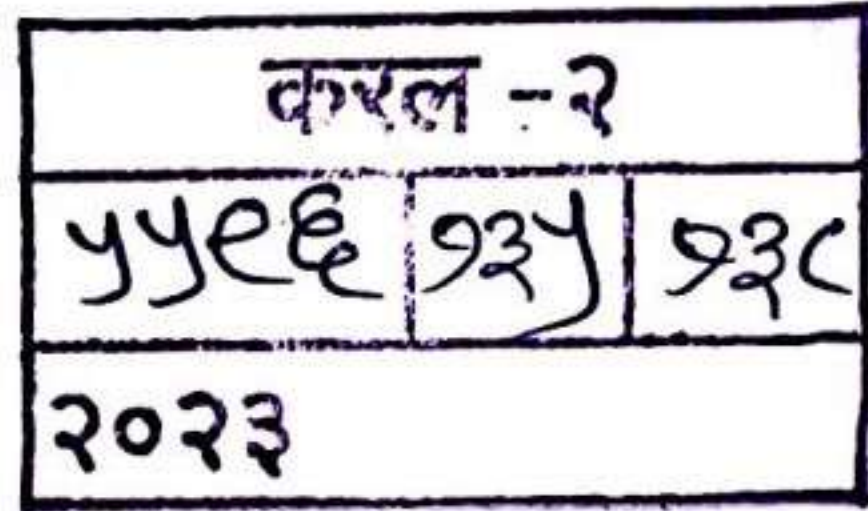 करल -२
५५९६ १३५ १३८
२०२३